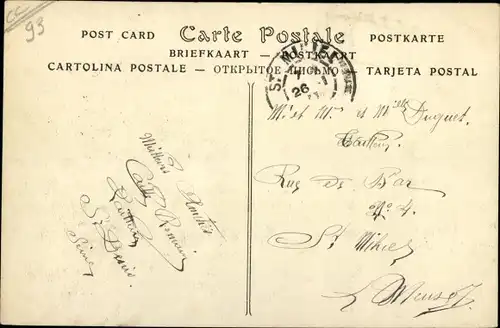 CC
93
POST CARD Carte Postale POSTKARTE
BRIEFKAART — POSTKORT
CARTOLINA POSTALE — ОТКРЫТОЕ ПИСЬМО — TARJETA POSTAL
ST MIHIEL
26
Meilleurs Amitiés
Romain
St Denis
Seine
et Duquet
Rue de Bar
No 4
St Mihiel
Meuse